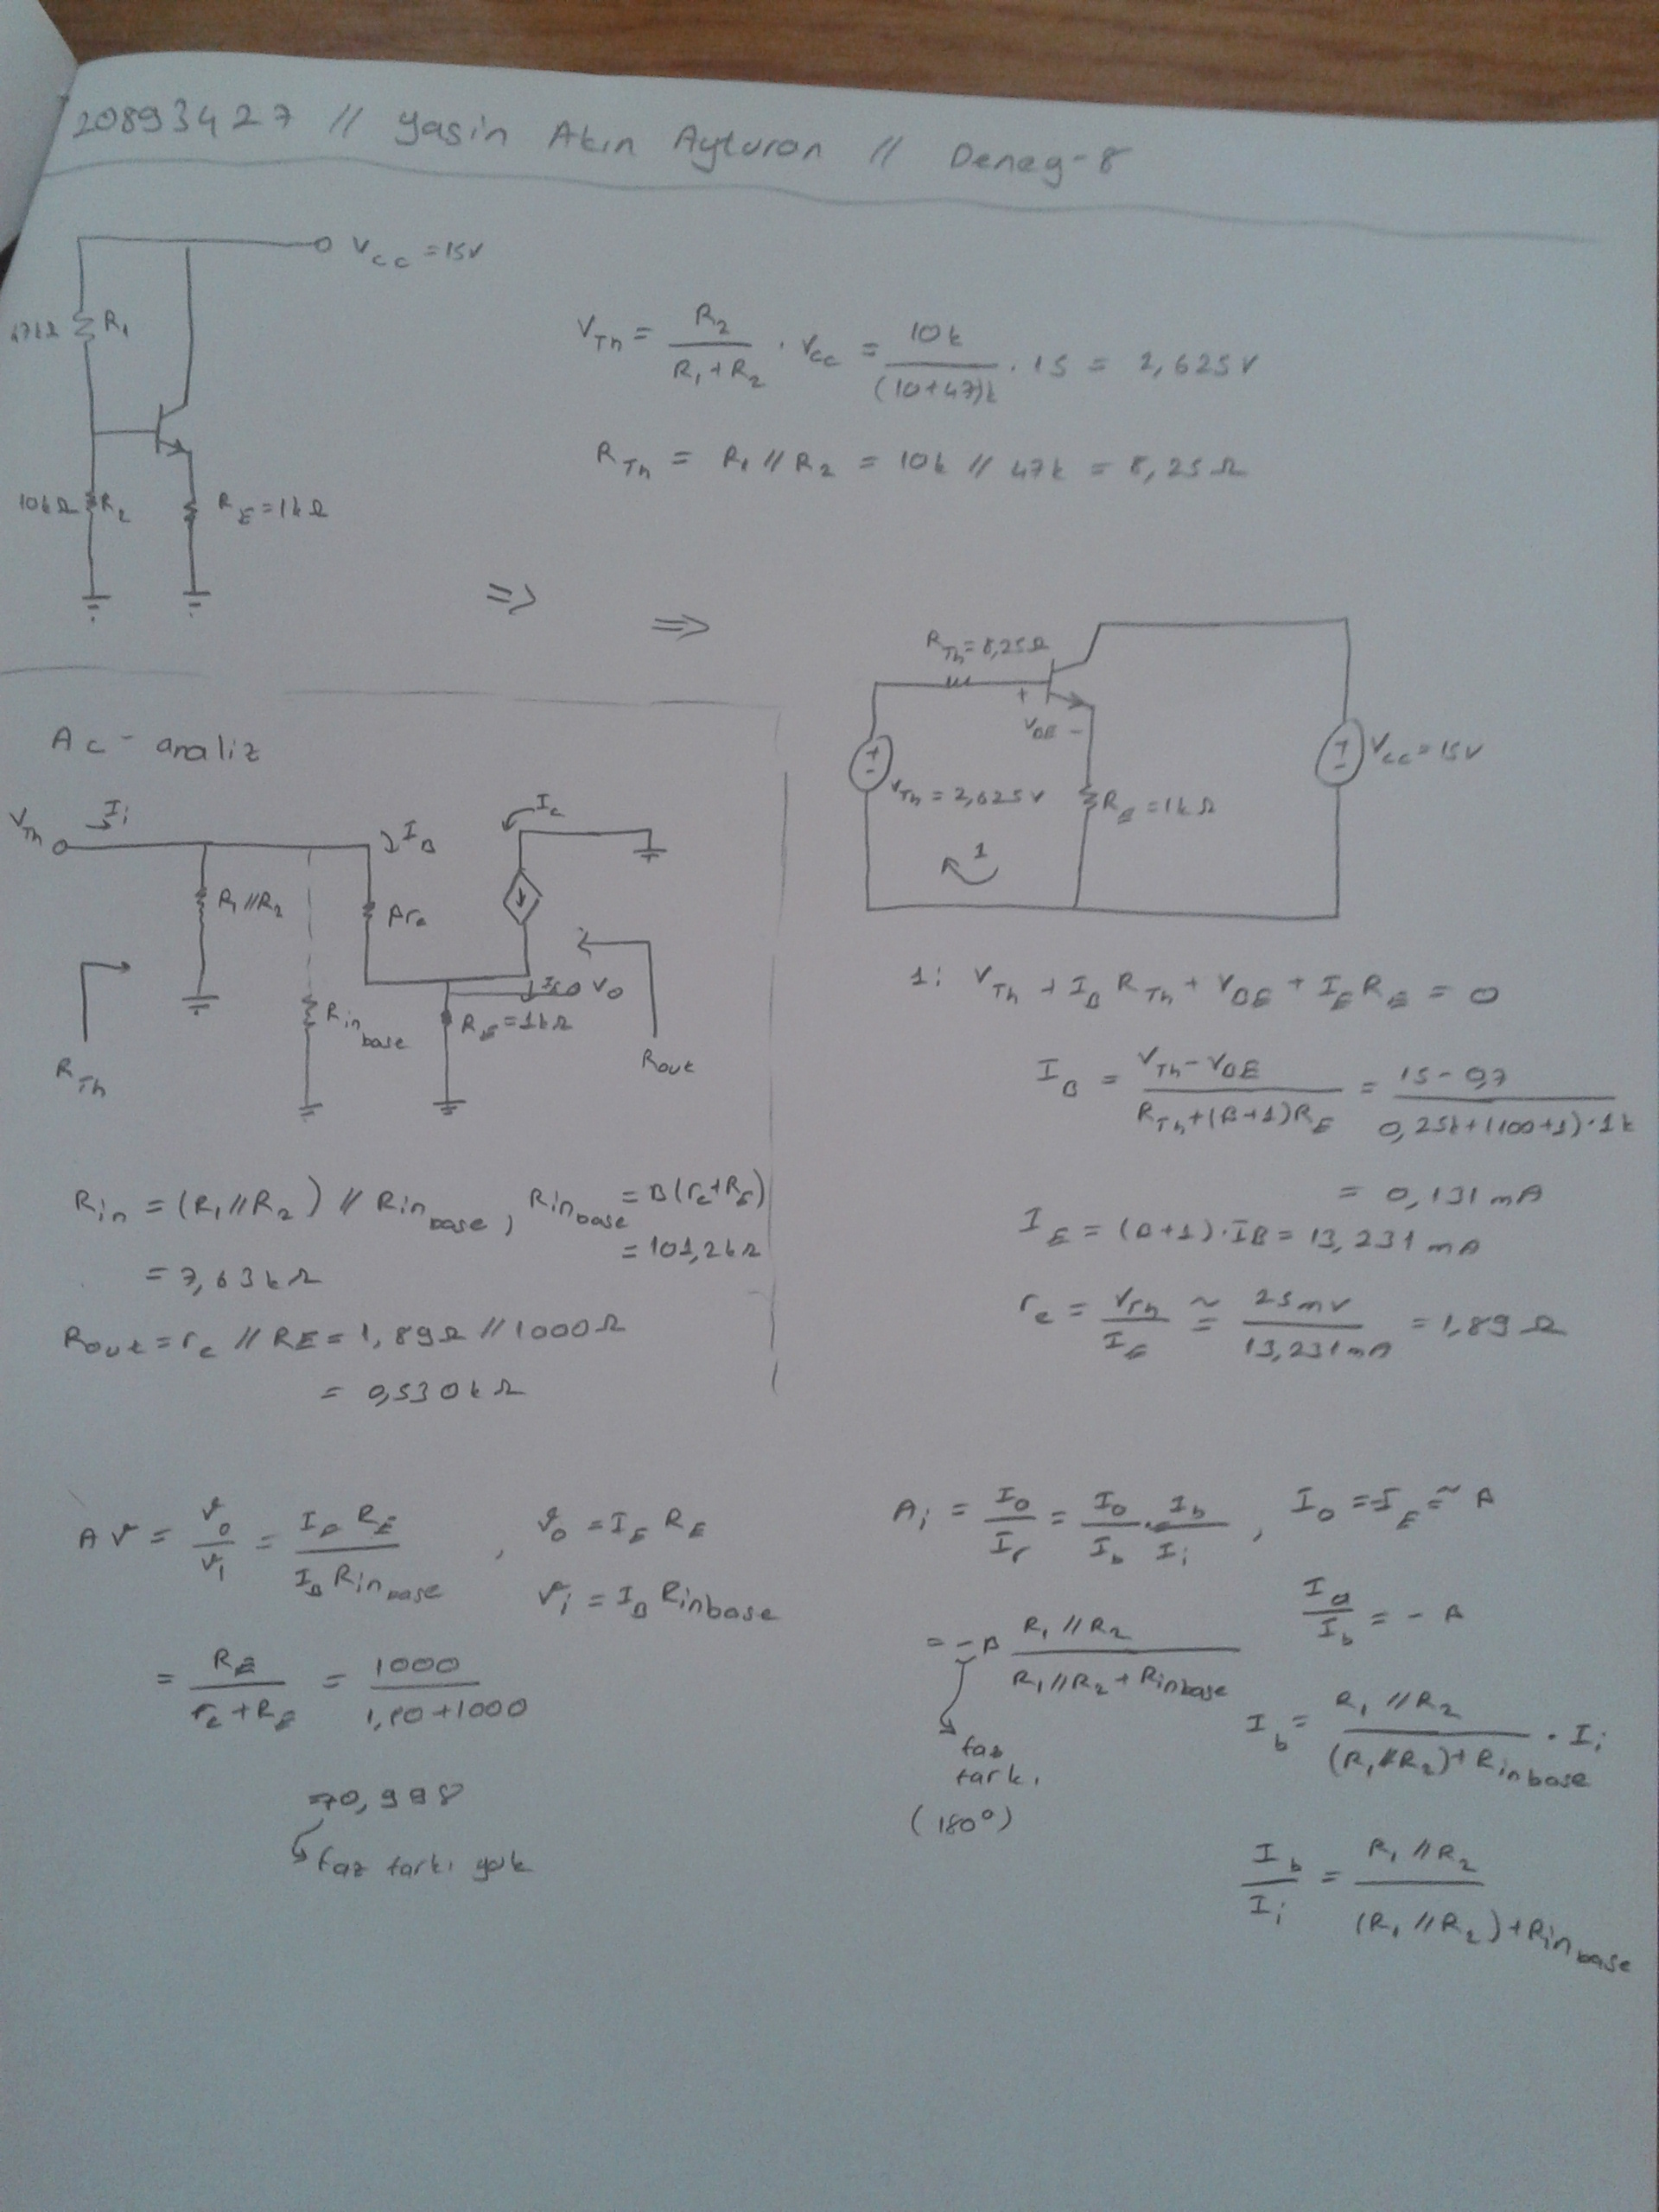 20893427 // Yasin Akın Ayturan // Deney-8
Vcc = 15V
R₁
10kΩ R₂
R_E = 1kΩ
V_Th = R₂ / (R₁+R₂) · Vcc = 10k / (10+47)k · 15 = 2,625 V
R_Th = R₁ // R₂ = 10k // 47k = 8,25 Ω
=> =>
R_Th = 8,25Ω
+ V_BE -
V_Th = 2,625 V
R_E = 1kΩ
Vcc = 15V
1
Ac - analiz
V_Th
I_i
I_B
I_c
R₁//R₂
βre
R_in base
R_E = 1kΩ
V_o
R_Th
Rout
1: V_Th + I_B R_Th + V_BE + I_E R_E = 0
I_B = (V_Th - V_BE) / (R_Th + (β+1)R_E) = (15 - 0,7) / (0,25k + (100+1)·1k)
= 0,131 mA
I_E = (β+1)·I_B = 13,231 mA
re = V_Th / I_E ≅ 25mV / 13,231mA = 1,89 Ω
Rin = (R₁//R₂) // Rin base, Rin base = β(re+R_E)
= 101,2kΩ
= 7,63kΩ
Rout = re // RE = 1,89Ω // 1000Ω
= 0,530kΩ
AV = Vo / Vi = I_E R_E / I_B Rin base , Vo = I_E R_E
Vi = I_B Rin base
= R_E / (re + R_E) = 1000 / (1,80+1000)
0,998
faz farkı yok
A_i = Io / Ii = Io / Ib · Ib / Ii , Io = -I_E ≅ β
Io / Ib = - β
= - β R₁//R₂ / (R₁//R₂ + Rin base)
faz
farkı
(180°)
Ib = R₁//R₂ / ((R₁//R₂) + Rin base) · Ii
Ib / Ii = R₁//R₂ / ((R₁//R₂) + Rin base)